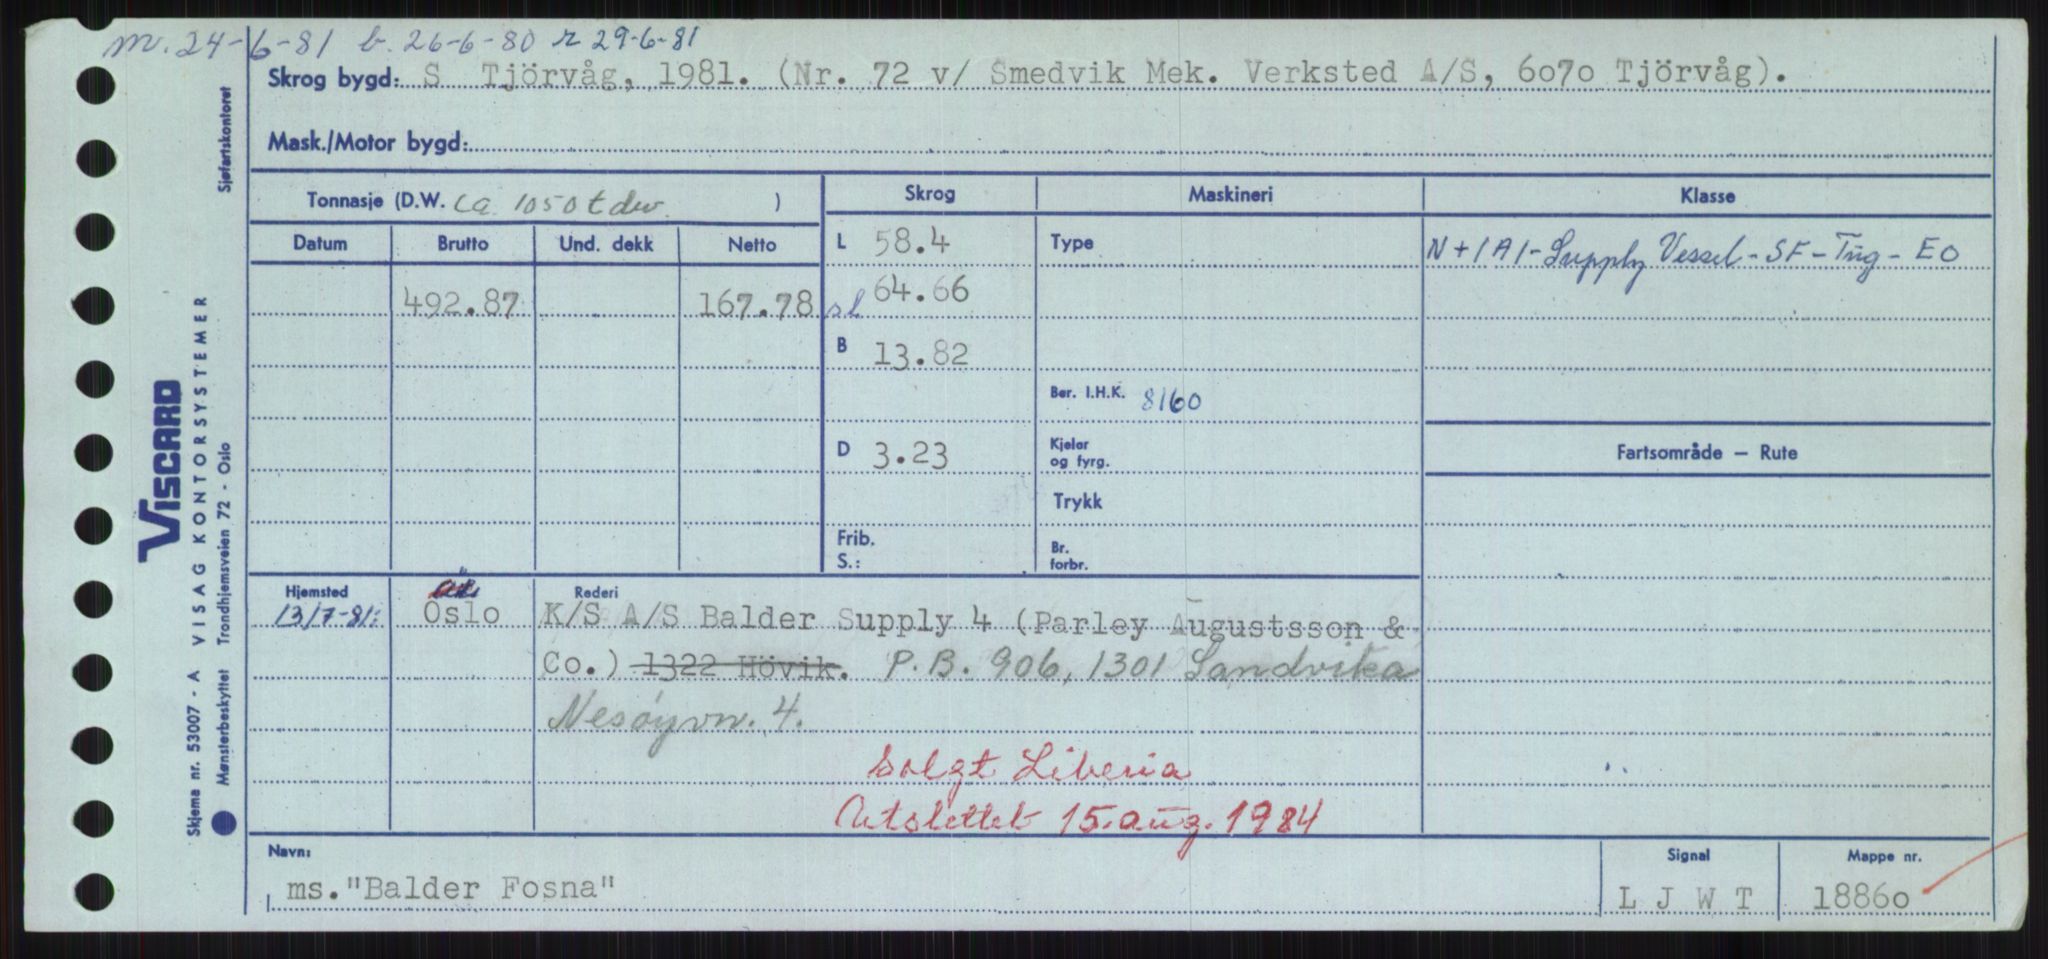 m. 24-6-81 b. 26-6-80 r 29-6-81
Skrog bygd: S Tjörvåg, 1981. (Nr. 72 v/ Smedvik Mek. Verksted A/S, 6070 Tjörvåg).
Mask./Motor bygd:
Tonnasje (D.W. ca. 1050 t dw. )
Skrog Maskineri Klasse
Datum Brutto Und. dekk Netto
L 58.4 Type N+1A1-Supply Vessel-SF-Tug-EO
492.87 167.78 sl 64.66
B 13.82
Ber. I.H.K. 8160
D 3.23 Kjelar og fyrg.
Fartsområde — Rute
Trykk
Frib. S.: Br. forbr.
Hjemsted Rederi
13/7-81: Oslo K/S A/S Balder Supply 4 (Parley Augustsson &
Co.) 1322 Hövik. P.B. 906, 1301 Sandvika
Nesøyvn. 4.
Solgt Liberia
Utslettet 15. aug. 1984
Navn: Signal Mappe nr.
ms. "Balder Fosna" L J W T 18860
VISCARD
VISAG KONTORSYSTEMER
Skjema nr. 53007 - A
Mønsterbeskyttet Trondhjemsveien 72 - Oslo
Sjøfartskontoret